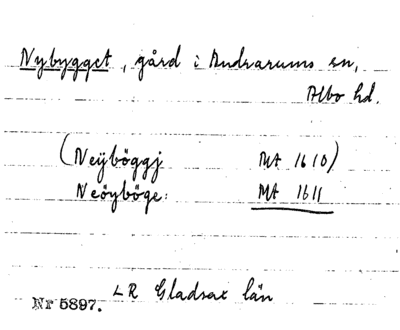 Nybygget, gård i Andrarums sn,
Albo hd.
(Neÿböggj MA 1610)
Neöyböge: MA 1611
LR Gladsax län
Nr 5897.